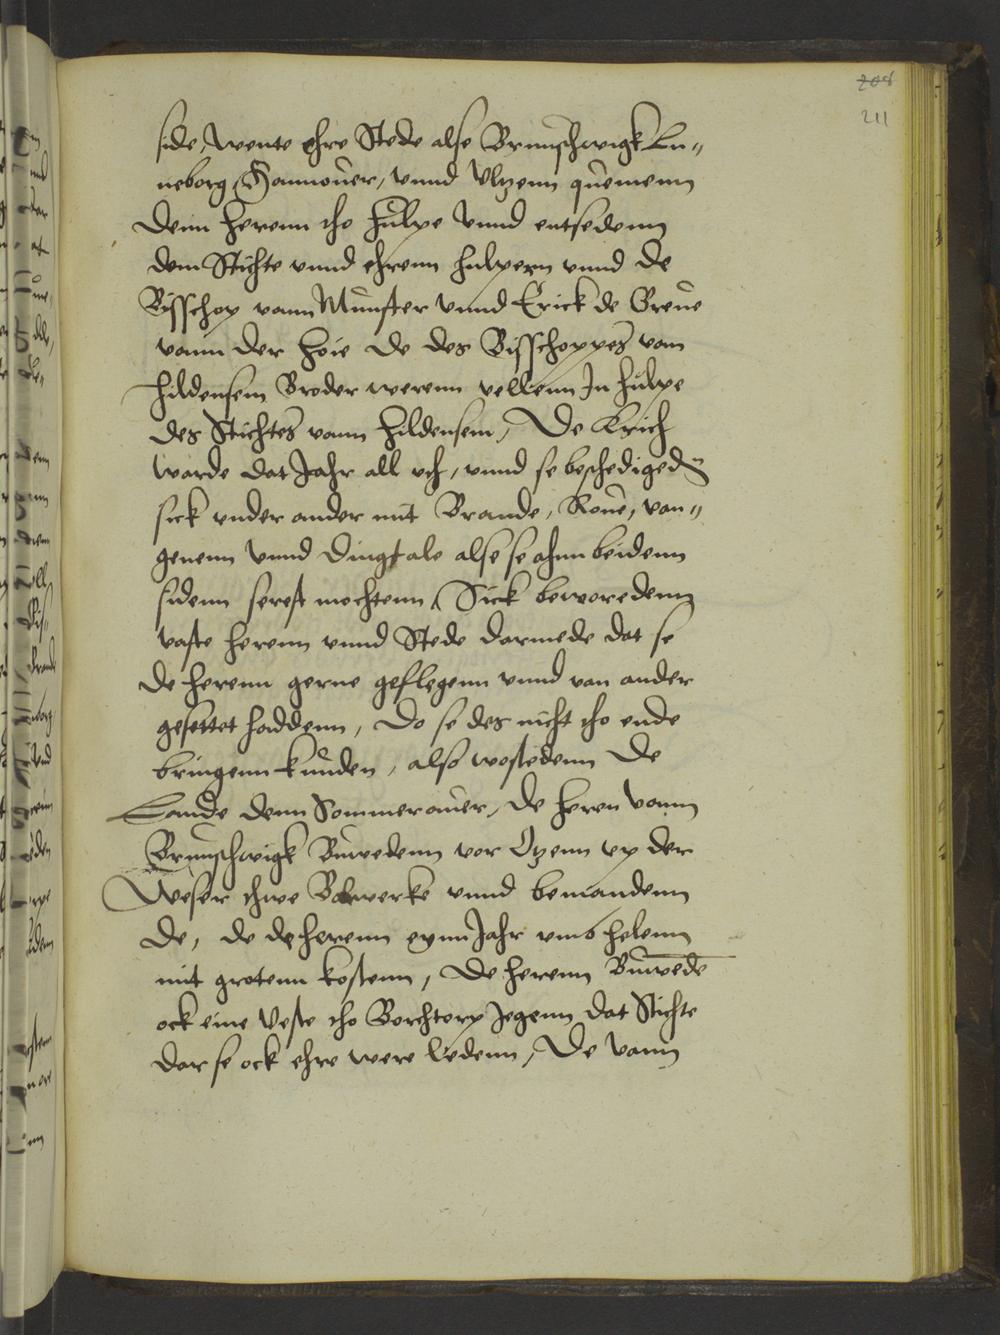 208
211
side, wente ehre Stede alse Brunschwigk Lu„
neborg Hannouer, vnnd Vlzenn quemenn
denn herenn tho hulpe vnnd entsedenn
dem Stichte vnnd ehrenn hulpern vnnd de
Bisschop vann Munster vnnd Erick de Greue
vann der hoie de des Bisschoppes vam
hildensem Broder werenn vellenn In hulpe
des Stichtes vann hildensem, De Krich
warde dat Jahr all vth, vnnd se beschedigedn̄
sick vnder ander mit Brande, Roue, van„
genenn vnnd dingtale alse se ahnn beidenn
sidenn serest mochtenn, Sick beworedenn
vaste herenn vnnd Stede darmede dat se
de herenn gerne geflegenn vnnd van ander
gesettet haddenn, do se des nicht tho ende
bringenn kunden, also wostedenn de
Lande denn Sommer auer, de heren vann
Brunschwigk Buwedenn vor Otzenn vp der
Weser thwe Bolwerke vnnd bemandenn
de, de de herenn eynn Jahr vmb helenn
mit grotenn kostenn, De herenn Buwede
ock eine Veste tho Borchtorp Jegenn dat Stichte
dar se ock ehre were ledenn, De vann